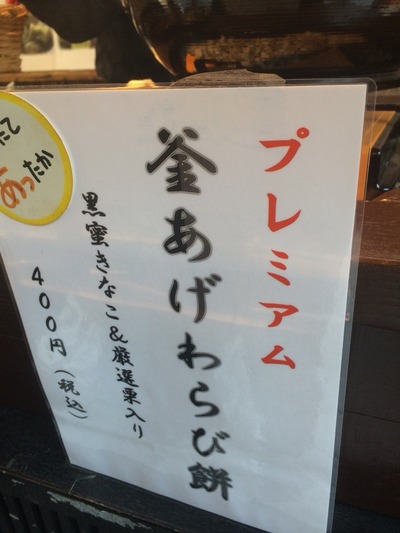 プレミアム
釜あげわらび餅
黒蜜きなこ&厳選栗入り
400円(税込)
たて
あったか